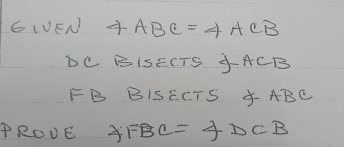 GIVEN ∡ABC = ∡ACB
DC BISECTS ∡ACB
FB BISECTS ∡ABC
PROVE ∡FBC = ∡DCB